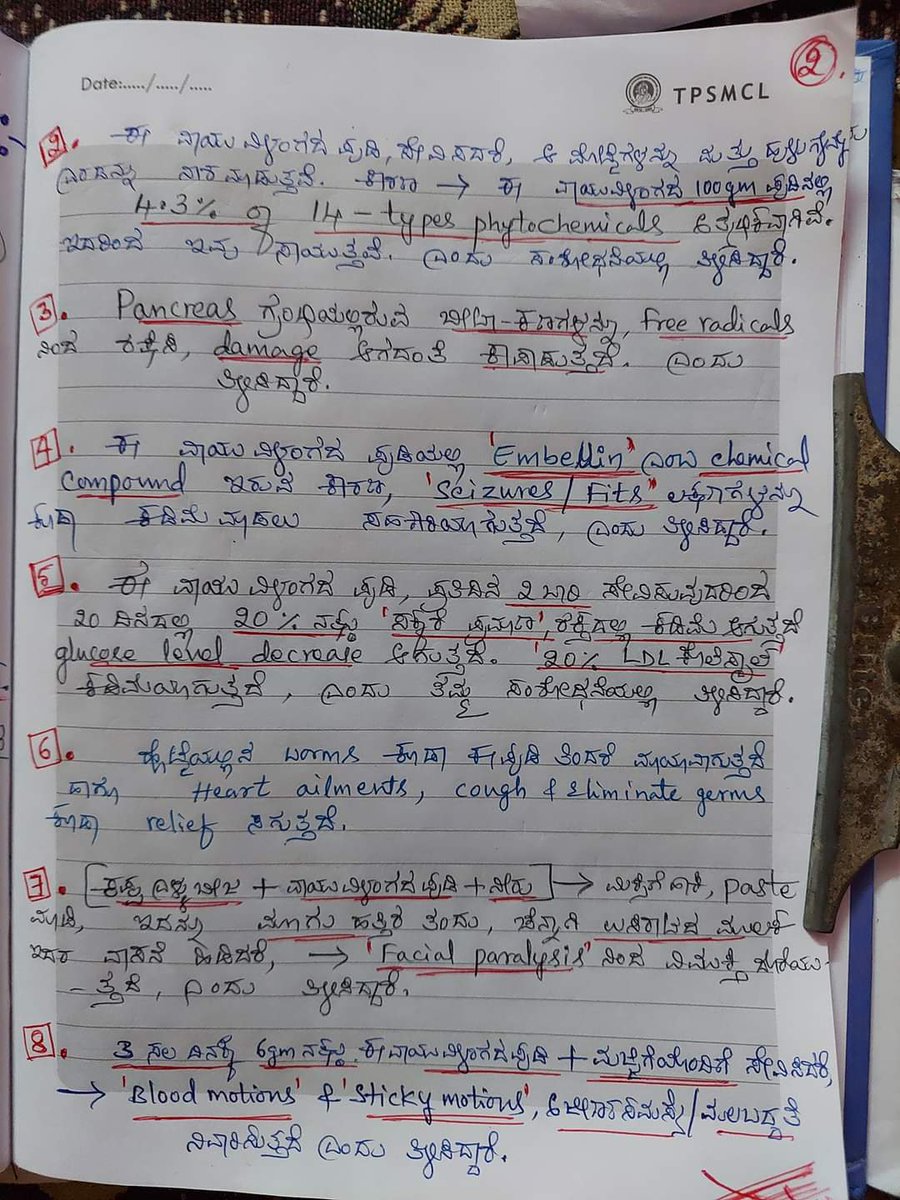 Date:...../...../.....
TPSMCL
2.
2. ಈ ವಾಯು ವಿಳಂಗದ ಪುಡಿ, ಸೇವಿಸಿದರೆ, ಆ ಮತ್ತು
ಎಂದನ್ನು ನಾಶ ಮಾಡುತ್ತವೆ. ಕಾರಣ → ಈ ವಾಯುವಿಳಂಗದ 100gm ಪುಡಿನಲ್ಲಿ
4.3% of 14-types phytochemicals
ಇದರಿಂದ ಇವು ಸಾಯುತ್ತವೆ. ಎಂದು ಸಂಶೋಧನೆಯಲ್ಲಿ ತಿಳಿಸಿದ್ದಾರೆ.
3. Pancreas ಗ್ರಂಥಿಯಲ್ಲಿರುವ ಬೀಟಾ-ಕಣಗಳನ್ನು, free radicals
ನಿಂದ ರಕ್ಷಿಸಿ, damage ಆಗದಂತೆ ಕಾಪಾಡುತ್ತದೆ. ಎಂದು
ತಿಳಿಸಿದ್ದಾರೆ.
4. ಈ ವಾಯು ವಿಳಂಗದ ಪುಡಿಯಲ್ಲಿ 'Embellin' ಎಂಬ chemical
compound ಇರುವ ಕಾರಣ, 'Seizures/Fits' ಲಕ್ಷಣಗಳನ್ನೂ
ಕೂಡಾ ಕಡಿಮೆ ಮಾಡಲು ಸಹಕಾರಿಯಾಗುತ್ತದೆ, ಎಂದು ತಿಳಿಸಿದ್ದಾರೆ.
5. ಈ ವಾಯು ವಿಳಂಗದ ಪುಡಿ, ಪ್ರತಿದಿನ 2 ಬಾರಿ ಸೇವಿಸುವುದರಿಂದ
20 ದಿನದಲ್ಲಿ 20% ನಷ್ಟು 'ಸಕ್ಕರೆ ಪ್ರಮಾಣ', ರಕ್ತದಲ್ಲಿ ಕಡಿಮೆ ಆಗುತ್ತದೆ
glucose level decrease ಆಗುತ್ತದೆ. '20% LDL ಕೊಲೆಸ್ಟ್ರಾಲ್'
ಕಡಿಮೆಯಾಗುತ್ತದೆ, ಎಂದು ತಮ್ಮ ಸಂಶೋಧನೆಯಲ್ಲಿ ತಿಳಿಸಿದ್ದಾರೆ.
6. ಹೊಟ್ಟೆಯಲ್ಲಿನ worms ಕೂಡಾ ಈ ಪುಡಿ ತಿಂದರೆ ಮಾಯವಾಗುತ್ತವೆ
ಹಾಗೂ Heart ailments, cough & eliminate germs
ಕೂಡಾ relief ಸಿಗುತ್ತದೆ.
7. [ಕಪ್ಪು ಎಳ್ಳು ಬೀಜ + ವಾಯುವಿಳಂಗದ ಪುಡಿ + ನೀರು] → ಮಿಕ್ಸಿಗೆ ಹಾಕಿ, paste
ಮಾಡಿ, ಇದನ್ನು ಮೂಗು ಹತ್ತಿರ ತಂದು, ಚೆನ್ನಾಗಿ ಉಸಿರಾಟದ ಮೂಲಕ
ಇದರ ವಾಸನೆ ಹಿಡಿದರೆ, → 'Facial paralysis' ನಿಂದ ವಿಮುಕ್ತಿ ದೊರೆಯು-
-ತ್ತದೆ, ಎಂದು ತಿಳಿಸಿದ್ದಾರೆ.
8. 3 ಸಲ ದಿನಕ್ಕೆ 6gm ನಷ್ಟು ಈ ವಾಯುವಿಳಂಗದ ಪುಡಿ + ಮಜ್ಜಿಗೆಯೊಂದಿಗೆ ಸೇವಿಸಿದರೆ,
→ 'Blood motions' & 'Sticky motions', ಮಲಬದ್ಧತೆ
ನಿವಾರಿಸುತ್ತದೆ ಎಂದು ತಿಳಿಸಿದ್ದಾರೆ.